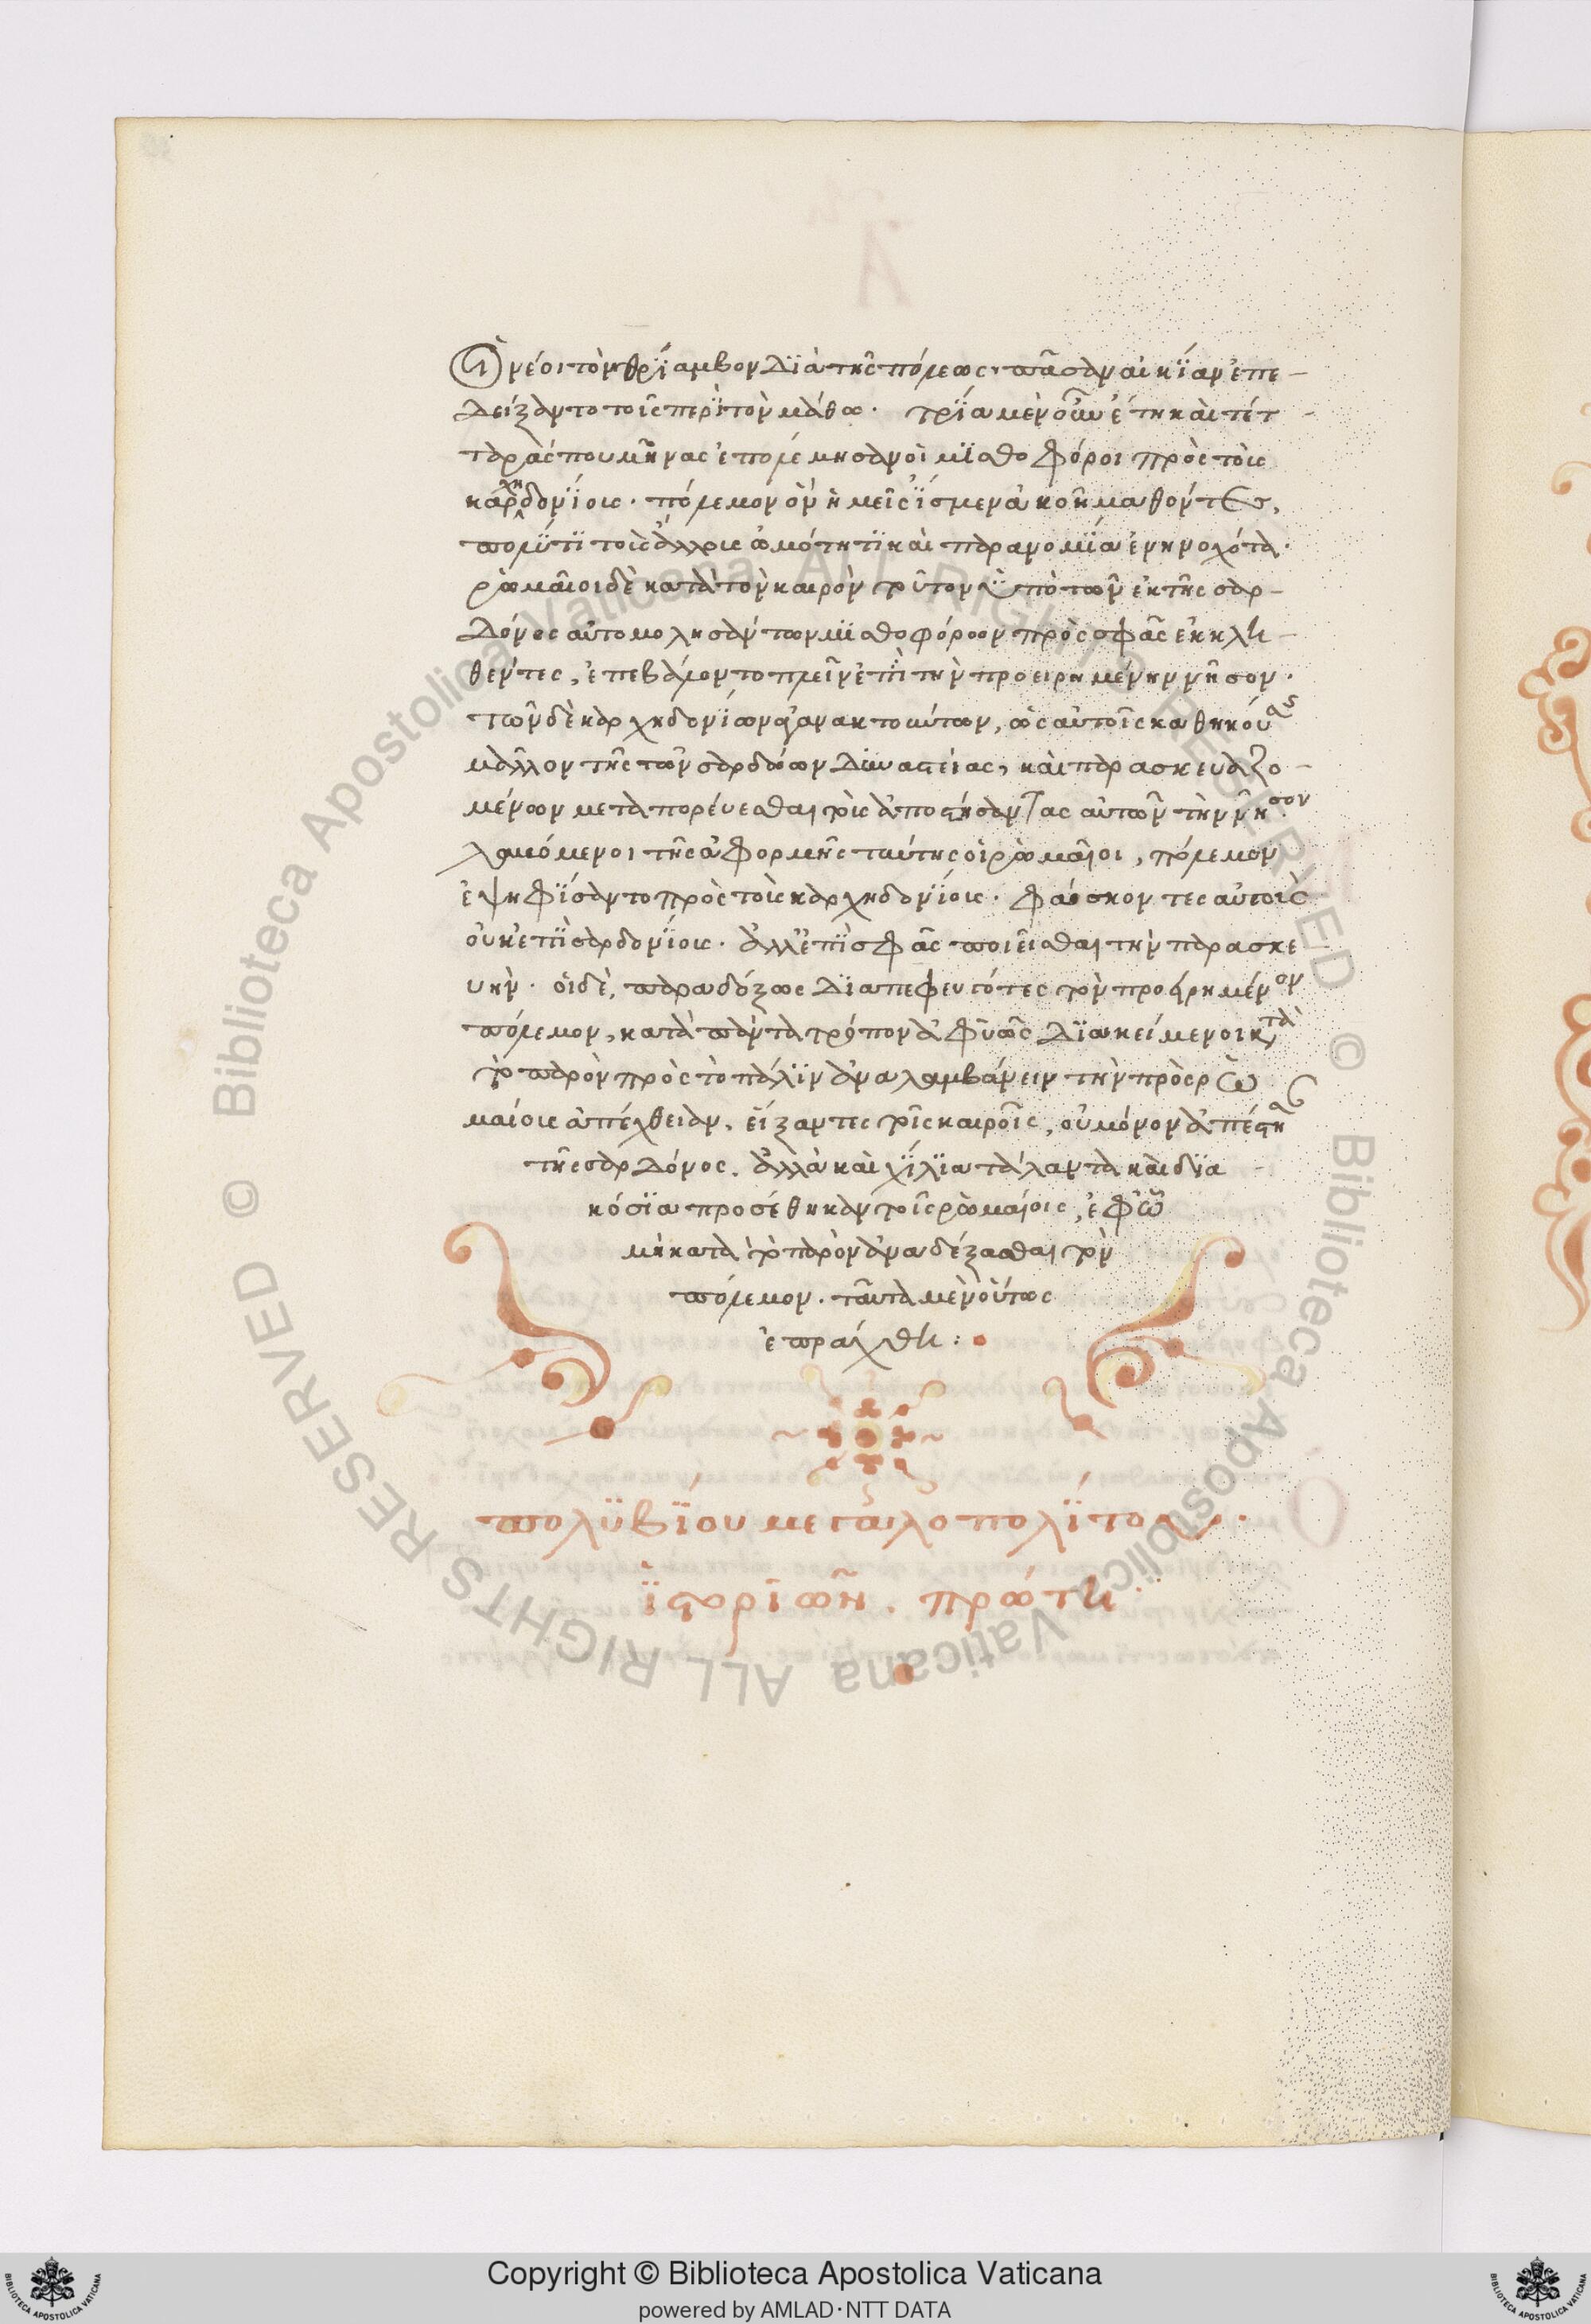 οἱ νέοι τὸν θρίαμβον διὰ τῆς πόλεως, πᾶσαν αἰκίαν ἐπε-
δείξαντο τοῖς περὶ τὸν μάθω. τρία μὲν οὖν ἔτη καὶ τέτ-
ταρας που μῆνας ἐπολέμησαν οἱ μισθοφόροι πρὸς τοὺς
καρχηδονίους. πόλεμον ὃν ἡμεῖς ἴσμεν ἀκοῇ μαθόντες,
πολύ τι τοὺς ἄλλους ὠμότητι καὶ παρανομίᾳ ἐνηνοχότα.
ῥωμαῖοι δὲ κατὰ τὸν καιρὸν τοῦτον ὑπὸ τῶν ἐκ τῆς σαρ-
δόνος αὐτομολησάντων μισθοφόρων πρὸς σφᾶς ἐκκλη-
θέντες, ἐπεβάλοντο πλεῖν ἐπὶ τὴν προειρημένην νῆσον.
τῶν δὲ καρχηδονίων ἀγανακτούντων, ὡς αὐτοῖς καθηκούσης
μᾶλλον τῆς τῶν σαρδώων δυναστείας, καὶ παρασκευαζο-
μένων μεταπορεύεσθαι τοὺς ἀποστήσαντας αὐτῶν τὴν νῆσον.
λαβόμενοι τῆς ἀφορμῆς ταύτης οἱ ῥωμαῖοι, πόλεμον
ἐψηφίσαντο πρὸς τοὺς καρχηδονίους. φάσκοντες αὐτοὺς
οὐκ ἐπὶ σαρδονίους. ἀλλ' ἐπὶ σφᾶς ποιεῖσθαι τὴν παρασκε
υήν. οἱ δὲ, παραδόξως διαπεφευγότες τὸν προειρημένον
πόλεμον, κατὰ πάντα τρόπον ἀφυῶς διακείμενοι κατὰ
τὸ παρὸν πρὸς τὸ πάλιν ἀναλαμβάνειν τὴν πρὸς ῥω
μαίους ἀπέχθειαν, εἴξαντες τοῖς καιροῖς, οὐ μόνον ἀπέστησαν
τῆς σαρδόνος, ἀλλὰ καὶ χίλια τάλαντα καὶ δια
κόσια προσέθηκαν τοῖς ῥωμαίοις, ἐφ' ᾧ
μὴ κατὰ τὸ παρὸν ἀναδέξασθαι τὸν
πόλεμον. ταῦτα μὲν οὕτως
ἐπράχθη:
πολυβίου μεγαλοπολίτου.
ἱστοριῶν. πρώτη
Copyright © Biblioteca Apostolica Vaticana
powered by AMLAD·NTT DATA
© Biblioteca Apostolica Vaticana ALL RIGHTS RESERVED © Biblioteca Apostolica Vaticana ALL RIGHTS RESERVED